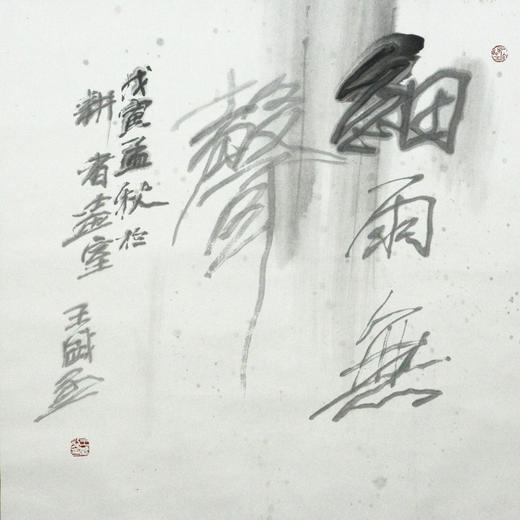 細雨無
聲
戊寅孟秋於
耕者壺室
王